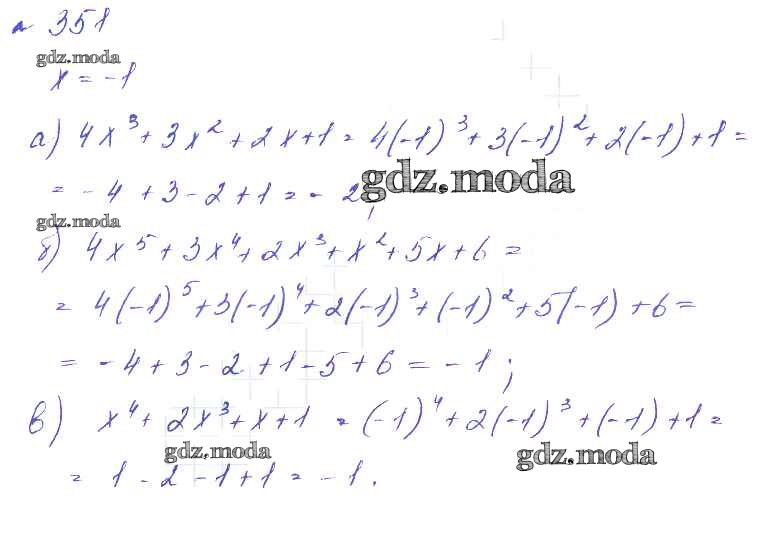 № 351
gdz.moda
x = -1
а) 4x³ + 3x² + 2x + 1 = 4(-1)³ + 3(-1)² + 2(-1) + 1 =
= -4 + 3 - 2 + 1 = -2;
gdz.moda
gdz.moda
б) 4x⁵ + 3x⁴ + 2x³ + x² + 5x + 6 =
= 4(-1)⁵ + 3(-1)⁴ + 2(-1)³ + (-1)² + 5(-1) + 6 =
= -4 + 3 - 2 + 1 - 5 + 6 = -1;
в) x⁴ + 2x³ + x + 1 = (-1)⁴ + 2(-1)³ + (-1) + 1 =
gdz.moda
gdz.moda
= 1 - 2 - 1 + 1 = -1.